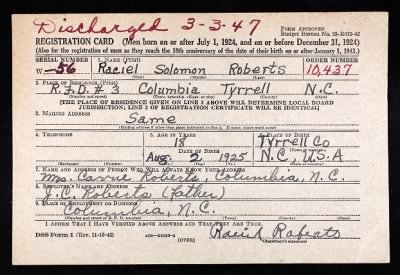 Discharged 3-3-47
FORM APPROVED
Budget Bureau No.
REGISTRATION CARD (Men born on or after July 1, 1924, and on or before December 31, 1924)
(Also for the registration of men as they reach the 18th anniversary of the date of their birth on or after January 1, 1943.)
SERIAL NUMBER 1. NAME (Print) ORDER NUMBER
W -56 Raciel Solomon Roberts 10,437
2. PLACE OF RESIDENCE (Print)
R.F.D. # 3 Columbia Tyrrell N.C.
[THE PLACE OF RESIDENCE GIVEN ON LINE 2 ABOVE WILL DETERMINE LOCAL BOARD
JURISDICTION; LINE 2 OF REGISTRATION CERTIFICATE WILL BE IDENTICAL]
3. MAILING ADDRESS
Same
4. TELEPHONE 5. AGE IN YEARS 6. PLACE OF BIRTH
18 Tyrrell Co
DATE OF BIRTH
Aug. 2 1925 N.C., U.S.A
7. NAME AND ADDRESS OF PERSON WHO WILL ALWAYS KNOW YOUR ADDRESS
Mrs. Roberts, Columbia, N.C.
8. EMPLOYER'S NAME AND ADDRESS
J.C. Roberts (father)
9. PLACE OF EMPLOYMENT OR BUSINESS
Columbia, N.C.
I AFFIRM THAT I HAVE VERIFIED ABOVE ANSWERS AND THAT THEY ARE TRUE.
DSS Form 1 (Rev. 11-16-42) (OVER) Raciel Roberts